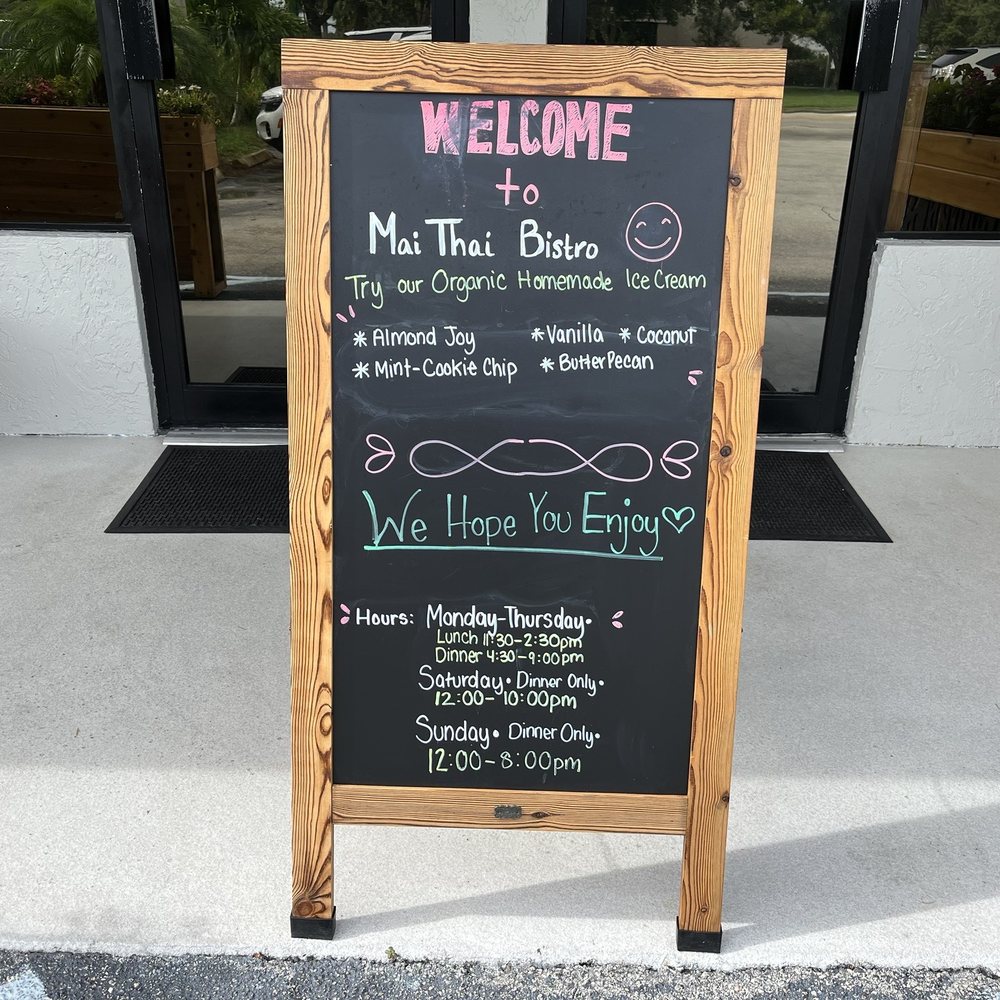 WELCOME
to
Mai Thai Bistro
Try our Organic Homemade Ice Cream
* Almond Joy * Vanilla * Coconut
* Mint-Cookie Chip * Butter Pecan
We Hope You Enjoy
Hours: Monday-Thursday•
Lunch 11:30-2:30pm
Dinner 4:30-9:00pm
Saturday• Dinner Only•
12:00-10:00pm
Sunday• Dinner Only•
12:00-8:00pm